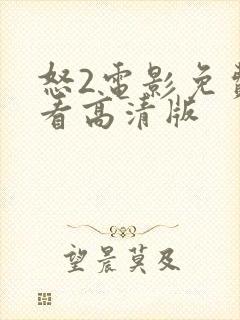 怒2电影免費
看高清版
望晨莫及